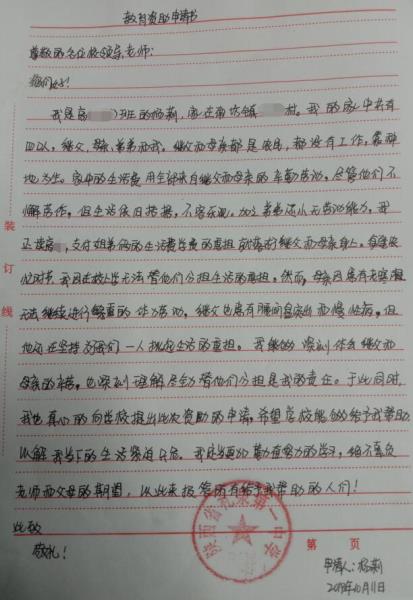 教育资助申请书
尊敬的各位校领导,老师:
你们好!
我是高 )班的杨莉,家在南坊镇 村。我的家中共有
四口人,继父,母亲,弟弟和我。继父和母亲都是农民,都没有工作,靠种
地为生。家中的生活费用全部来自继父和母亲的辛勤劳动,尽管他们不
懈劳作,但生活依旧拮据,不容乐观。加之弟弟还小无劳动能力,我
正读高 ,支付姐弟俩的生活费学费的重担就落到继父和母亲身上。每每农
忙时节,我因在校上学无法替他们分担生活的重担。然而,母亲因患有
无法继续进行繁重的体力劳动,继父也患有腰间盘突出和慢性病,但
他还在坚持为我们一人挑起生活的重担。我能够深刻体会继父和
母亲的辛苦,也深刻理解尽全力替他们分担是我的责任。于此同时,
我也真心的向学校提出此次资助的申请,希望学校能够给予我帮助,
以解我当下的生活紧迫只急。我定当更加勤奋努力的学习,绝不辜负
老师和父母的期望,以此来报答所有给予我帮助的人们!
此致
敬礼!
第 页
申请人:杨莉
2019年10月11日
装
订
线
陕西省礼泉第一中学